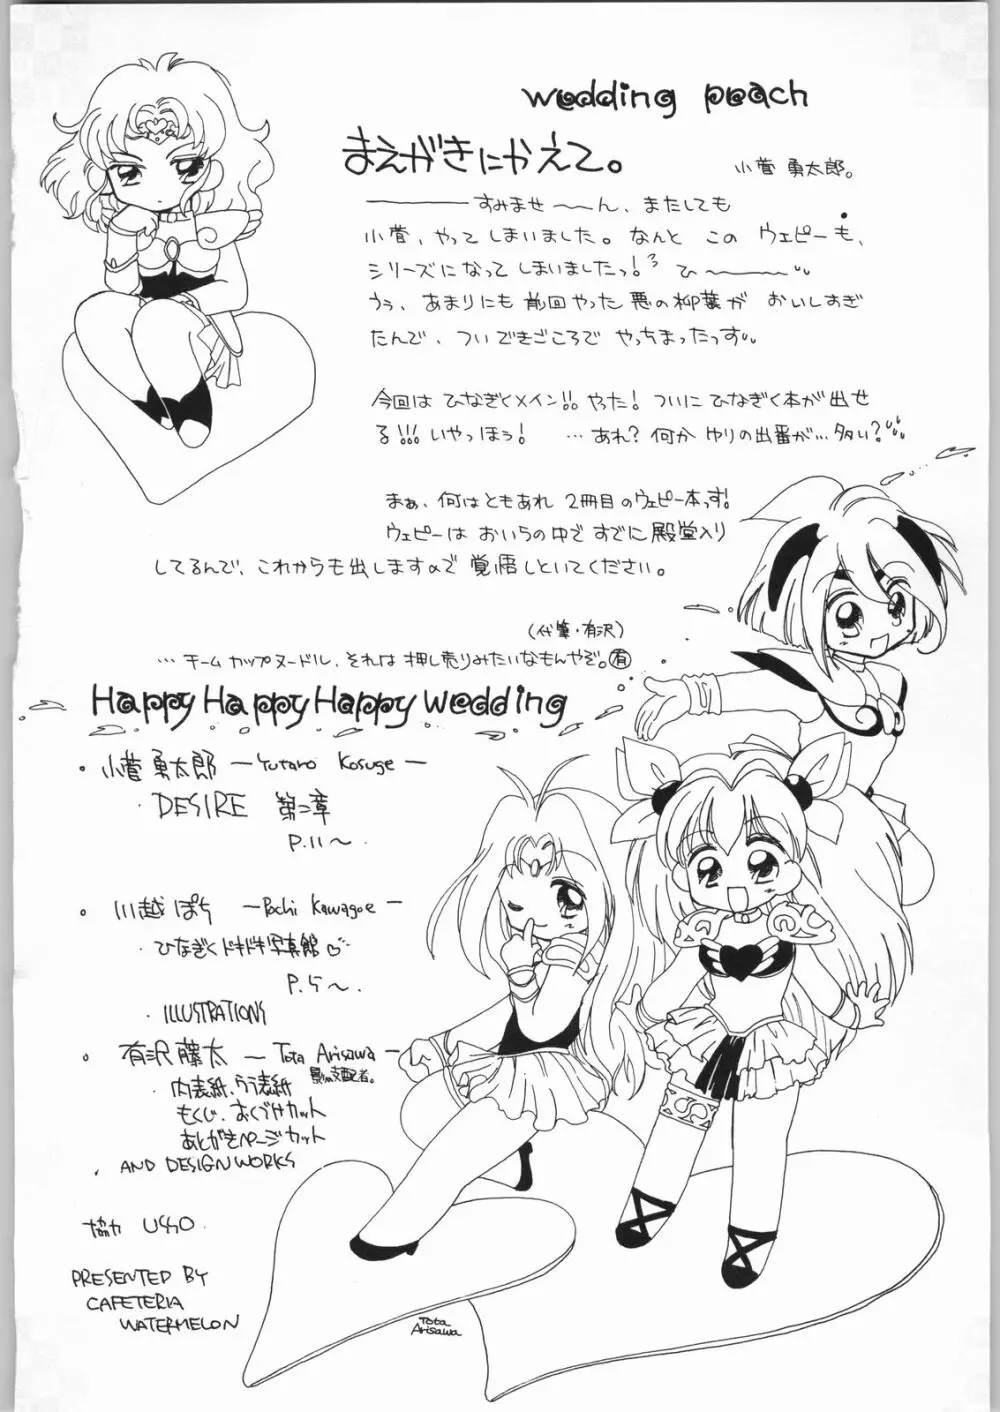 wedding peach
まえがきにかえて。
小菅 勇太郎。
――――すみませ〜〜ん、またしても
小菅、やってしまいました。なんと このウェピーも、
シリーズになってしまいましたっ! ひ〜〜〜
うぅ、あまりにも前回やった悪の柳葉が おいしすぎ
たんで、ついできごころで やっちまったっす
今回は ひなぎくメイン!! やった! ついにひなぎく本が出せ
る!!! いやっほぅ! …あれ? 何か ゆりの出番が…多い?
まぁ、何はともあれ 2冊目のウェピー本っす!
ウェピーは おいらの中ですでに殿堂入り
してるんで、これからも出しますので覚悟しといてください。
(代筆・有沢)
…チームカップヌードル、それは押し売りみたいなもんやぞ。㊒
Happy Happy Happy wedding
・小菅 勇太郎 ―Yutaro Kosuge―
・DESIRE 第二章
P.11〜.
・川越 ぽち ―Pochi Kawagoe―
・ひなぎくドキドキ写真館♡
P.5〜.
・ILLUSTRATIONS
・有沢 藤太 ―Tota Arisawa―
影の支配者。
・内表紙、うら表紙
もくじ、おくづけカット
あとがきページカット
・AND DESIGN WORKS
協力
PRESENTED BY
CAFETERIA
WATERMELON
Tota
Arisawa